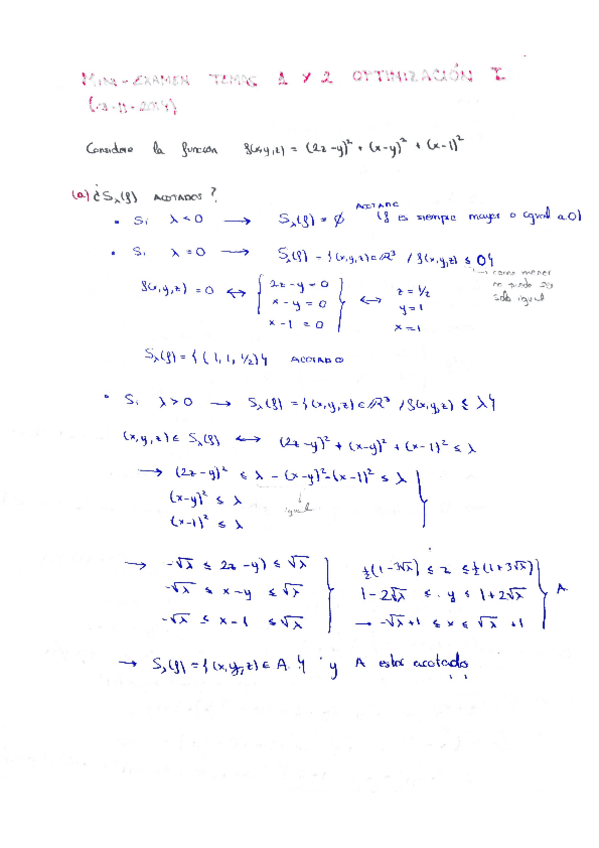 MINI-EXAMEN TEMAS 1 Y 2 OPTIMIZACIÓN I
-11-2014)
Considere la función f(x,y,z) = (2z-y)² + (x-y)² + (x-1)²
(a) ¿Sλ(f) ACOTADOS?
• Si λ<0 → Sλ(f) = ∅ (f es siempre mayor o igual a 0)
• Si λ=0 → Sλ(f) = {(x,y,z)∈ℝ³ / f(x,y,z) ≤ 0}
como menor
no puede ser
solo igual
f(x,y,z) = 0 ↔ { 2z-y=0 x-y=0 x-1=0 } ↔ z=1/2 y=1 x=1
Sλ(f) = {(1,1,1/2)} ACOTADO
• Si λ>0 → Sλ(f) = {(x,y,z)∈ℝ³ / f(x,y,z) ≤ λ}
(x,y,z)∈ Sλ(f) ↔ (2z-y)² + (x-y)² + (x-1)² ≤ λ
→ (2z-y)² ≤ λ - (x-y)² - (x-1)² ≤ λ
(x-y)² ≤ λ
igual
(x-1)² ≤ λ
→ -√λ ≤ 2z-y) ≤ √λ } ½(1-3√λ) ≤ z ≤ ½(1+3√λ)
-√λ ≤ x-y ≤ √λ } 1-2√λ ≤ y ≤ 1+2√λ } A
-√λ ≤ x-1 ≤ √λ } → -√λ+1 ≤ x ≤ √λ+1
→ Sλ(f) = {(x,y,z)∈A} y A estar acotados